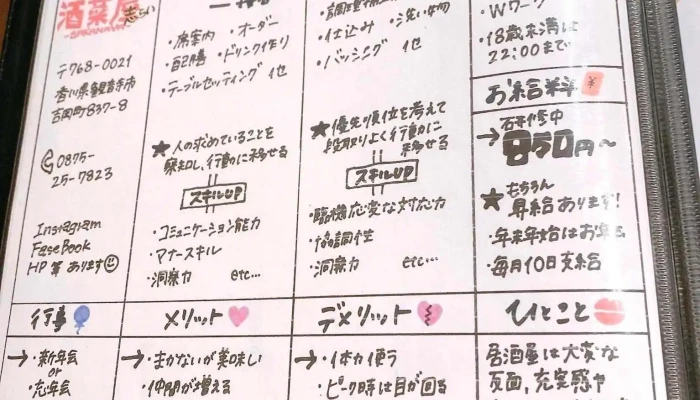 酒菜屋
-SAKANAYA-
〒768-0021
香川県観音寺市
吉岡町837-8
0875-
25-7823
Instagram
FaseBook
HP 等 あります
・席案内 ・オーダー
・配膳 ・ドリンク作り
・テーブルセッティング 他
★人の求めていることを
察知し、行動に移せる
スキルUP
・コミュニケーション能力
・マナースキル
・洞察力 etc…
・仕込み ・洗い物
・バッシング 他
★優先順位を考えて
段取りよく行動に
移せる
スキルUP
・臨機応変な対応力
・協調性
・洞察力 etc…
・Wワーク
・18歳未満は
22:00まで
お給料 ¥
研修中
→850円〜
★もちろん
昇給あります!
・年末年始はお年玉
・毎月10日支給
行事
→・新年会
or
忘年会
メリット
→・まかないが美味しい
・仲間が増える
デメリット
→・体力使う
・ピーク時は目が回る
ひとこと
居酒屋は大変な
反面、充実感や